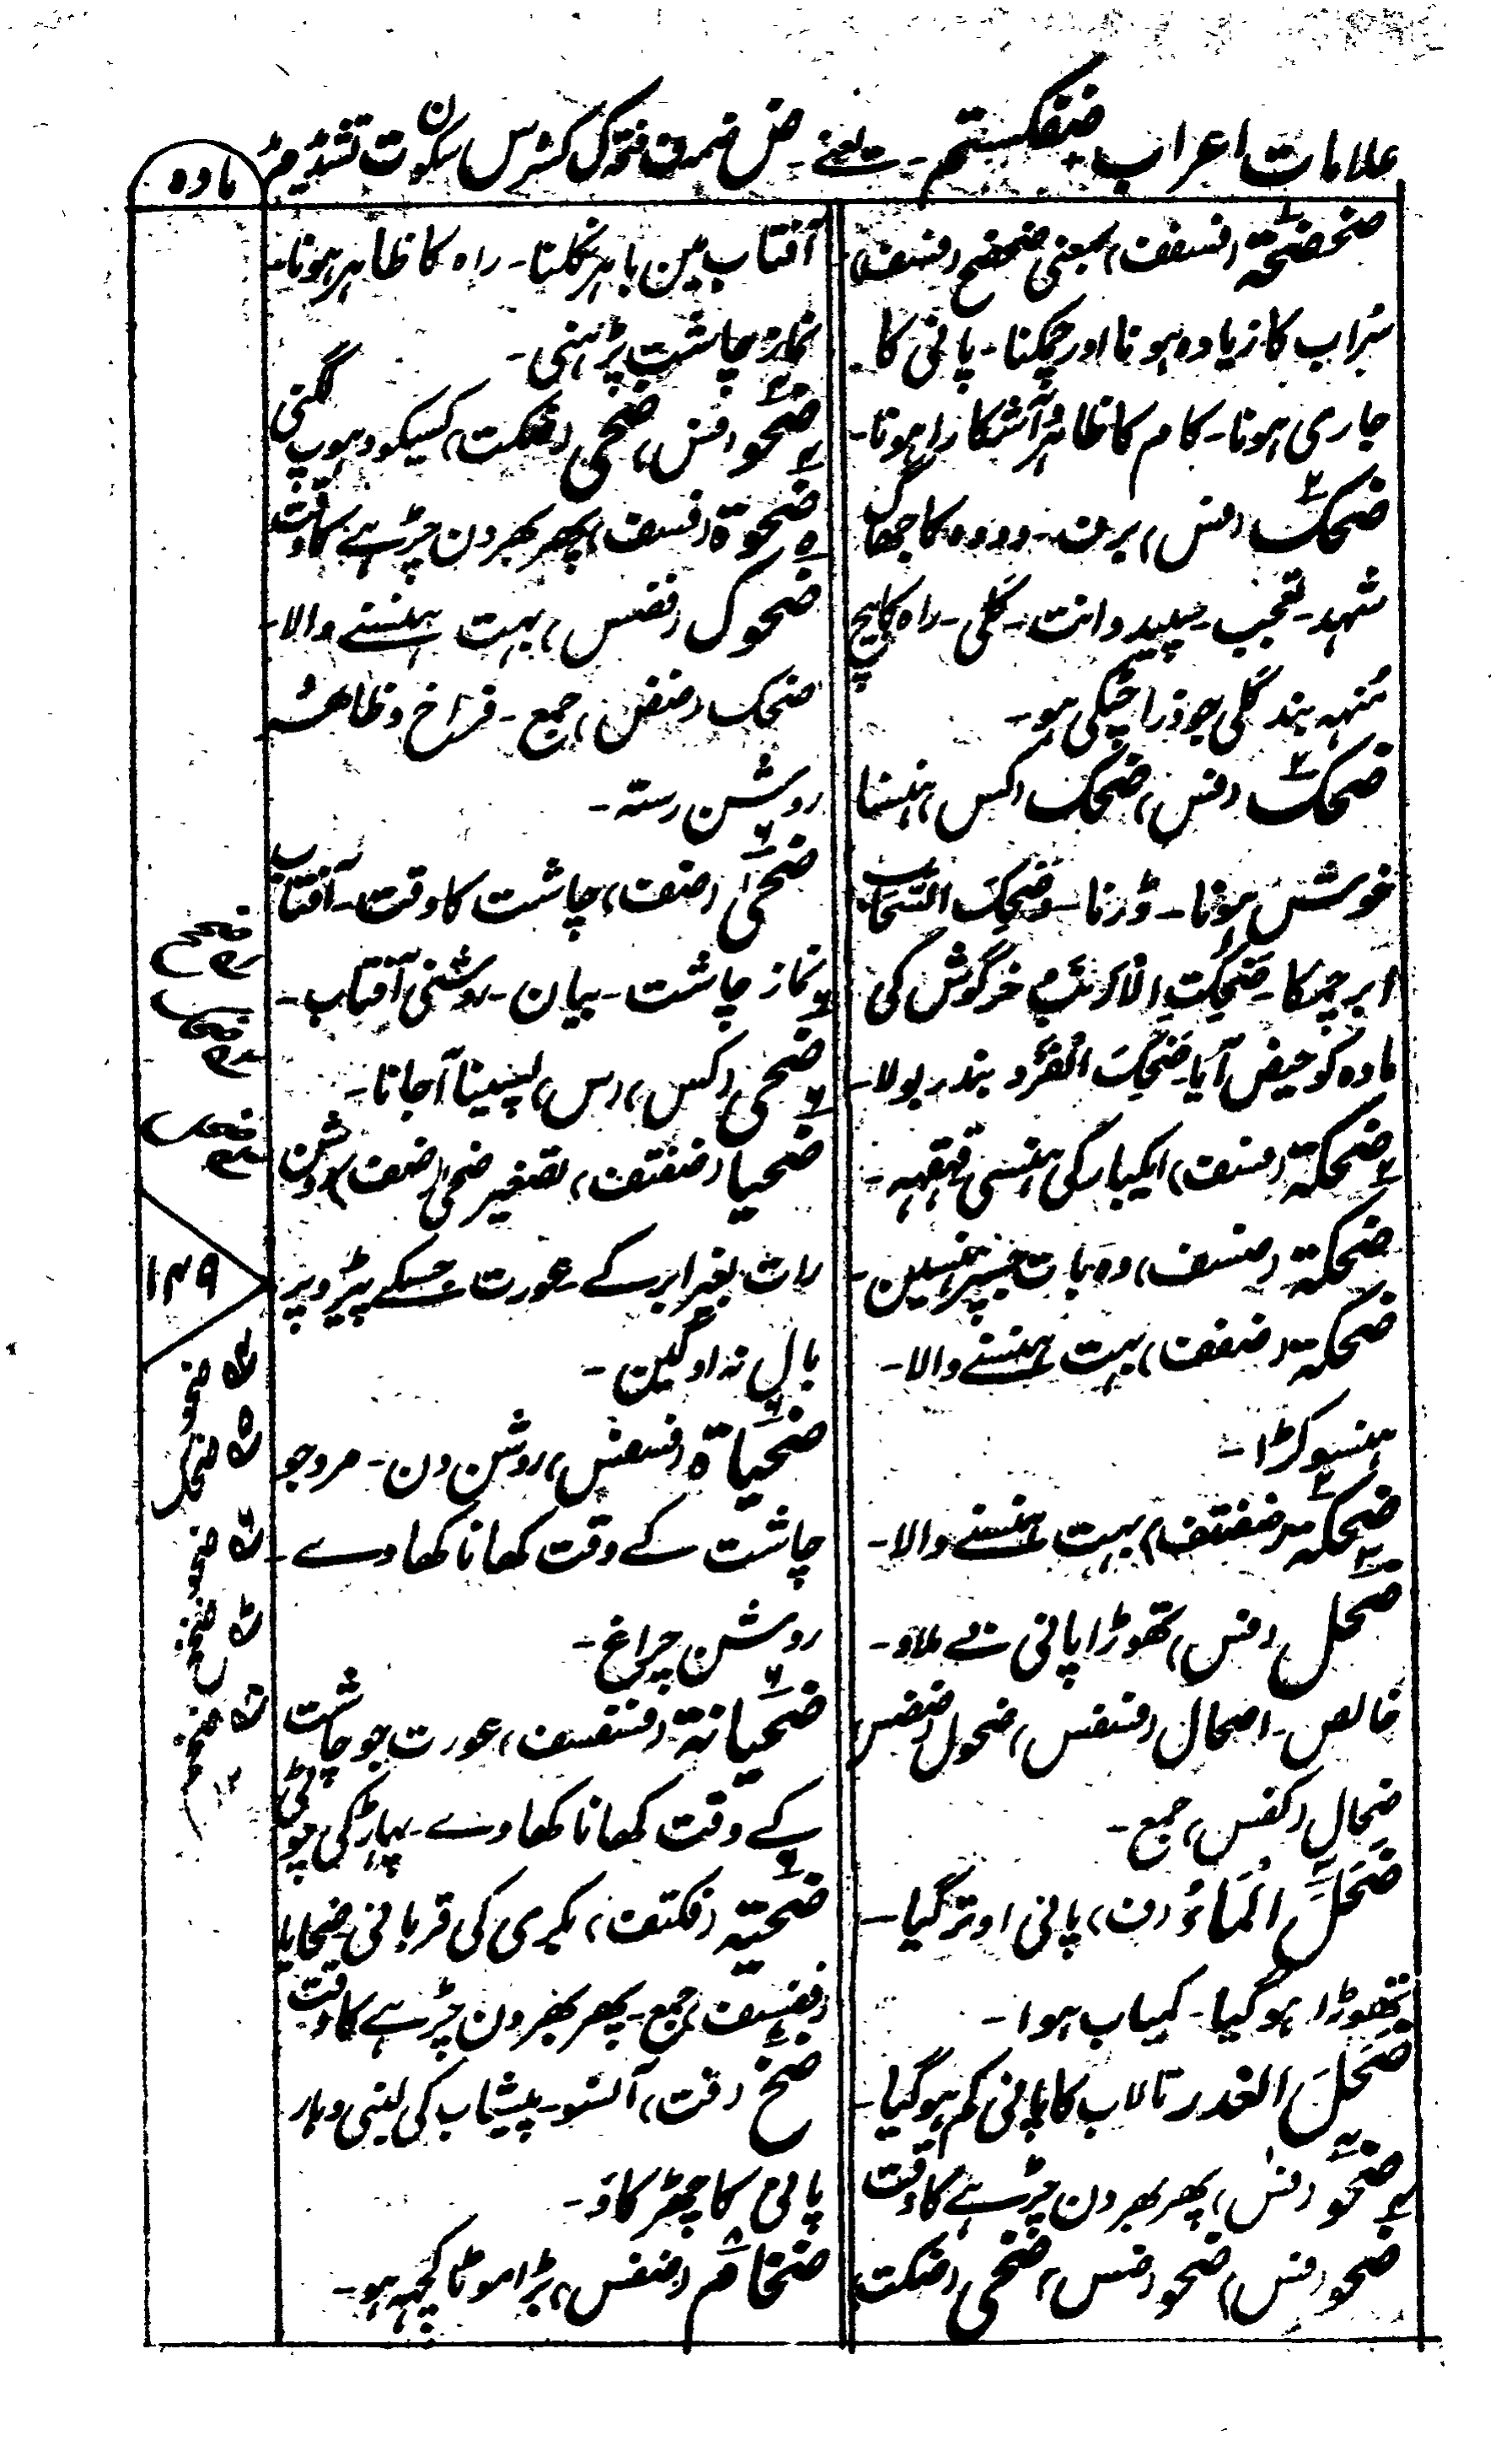 علامات اعراب ضفکستم ۔ یعنے ۔ ض ضمہ ف فتحہ ک کسرہ س سکون ت تشدید م مد
مادہ
ضحضحۃ (فسفف) بمعنی ضحضح (فسف)
سراب کا زیادہ ہونا اور چمکنا ۔ پانی کا
جاری ہونا ۔ کام کا ظاہر و آشکارا ہونا ۔
ضحک (فس) برف ۔ دودہ کا جھاگ
شہد ۔ تعجب ۔ سپید دانت ۔ کلی ۔ راہ کا بیچ
مُنہہ بند کلی جو ذرا چٹکی ہو ۔
ضحک (فس) ضحک (کس) ہنسنا
خوش ہونا ۔ ڈرنا ۔ وضحِکَ السّحاب
ابر چمکا ۔ ضحِکَتِ الارنب خرگوش کی
مادہ کو حیض آیا ۔ ضحِکَ القِرد بندر بولا ۔
ضحکۃ (فسف) ایکبارگی ہنسی قہقہہ ۔
ضحکۃ (ضسف) وہ بات جسپر ہنسین ۔
ضحکۃ (ضفف) بہت ہنسنے والا ۔
ہنسوکڑا ۔
ضحکۃ (ضفتف) بہت ہنسنے والا ۔
ضحل (فس) تھوڑا پانی بے ملاو ۔
خالص ۔ اضحال (فسفس) ضحول (ضفس)
ضحال (کفس) جمع ۔
ضَحَلَ الْمَاءُ (ف) پانی اوتر گیا ۔
تھوڑا ہو گیا ۔ کمیاب ہوا ۔
ضَحَلَ الغدر تالاب کا پانی کم ہو گیا ۔
ضحو (فس) پھر بھر دن چڑہے کا وقت
ضحو (فس) ضحو (ضس) ضحی (ضکت)
آفتاب مین باہر نکلنا ۔ راہ کا ظاہر ہونا ۔
نماز چاشت پڑہنی ۔
ضحو (فس) ضحی (ضکت) کسیکو دہوپ لگنی
ضحوۃ (فسف) پھر بھر دن چڑہے کا وقت
ضحوک (ففس) بہت ہنسنے والا ۔
ضحک (ضفض) جمع ۔ فراخ و ظاہر
روشن رستہ ۔
ضحیٰ (ضف) چاشت کا وقت ۔ آفتاب
نماز چاشت ۔ بیان ۔ روشنی آفتاب ۔
ضحی (کس) (س) پسینا آجانا ۔
ضحیا (ضفتف) تصغیر ضحیٰ (ضف) روشن
رات بغیر ابر کے ۔ عورت جسکے پیڑو پر
بال نہ اوگین ۔
ضحیاۃ (فسفس) روشن دن ۔ مرد جو
چاشت کے وقت کھانا کھاوے ۔
روشن چراغ ۔
ضحیانۃ (فسفسف) عورت جو چاشت
کے وقت کھانا کھاوے ۔ پہاڑ کی چوٹی
ضحیۃ (فکتف) بکری کی قربانی ۔ ضحایا
(ففسف) جمع ۔ پھر بھر دن چڑہے کا وقت
ضخ (فت) آنسو ۔ پیشاب کی لنبی دہار
پانی کا چھڑکاؤ ۔
ضخام (ضفس) بڑا موٹا کچھہ ہو ۔
۱۴۹
ضحو
ضحک
ضحو